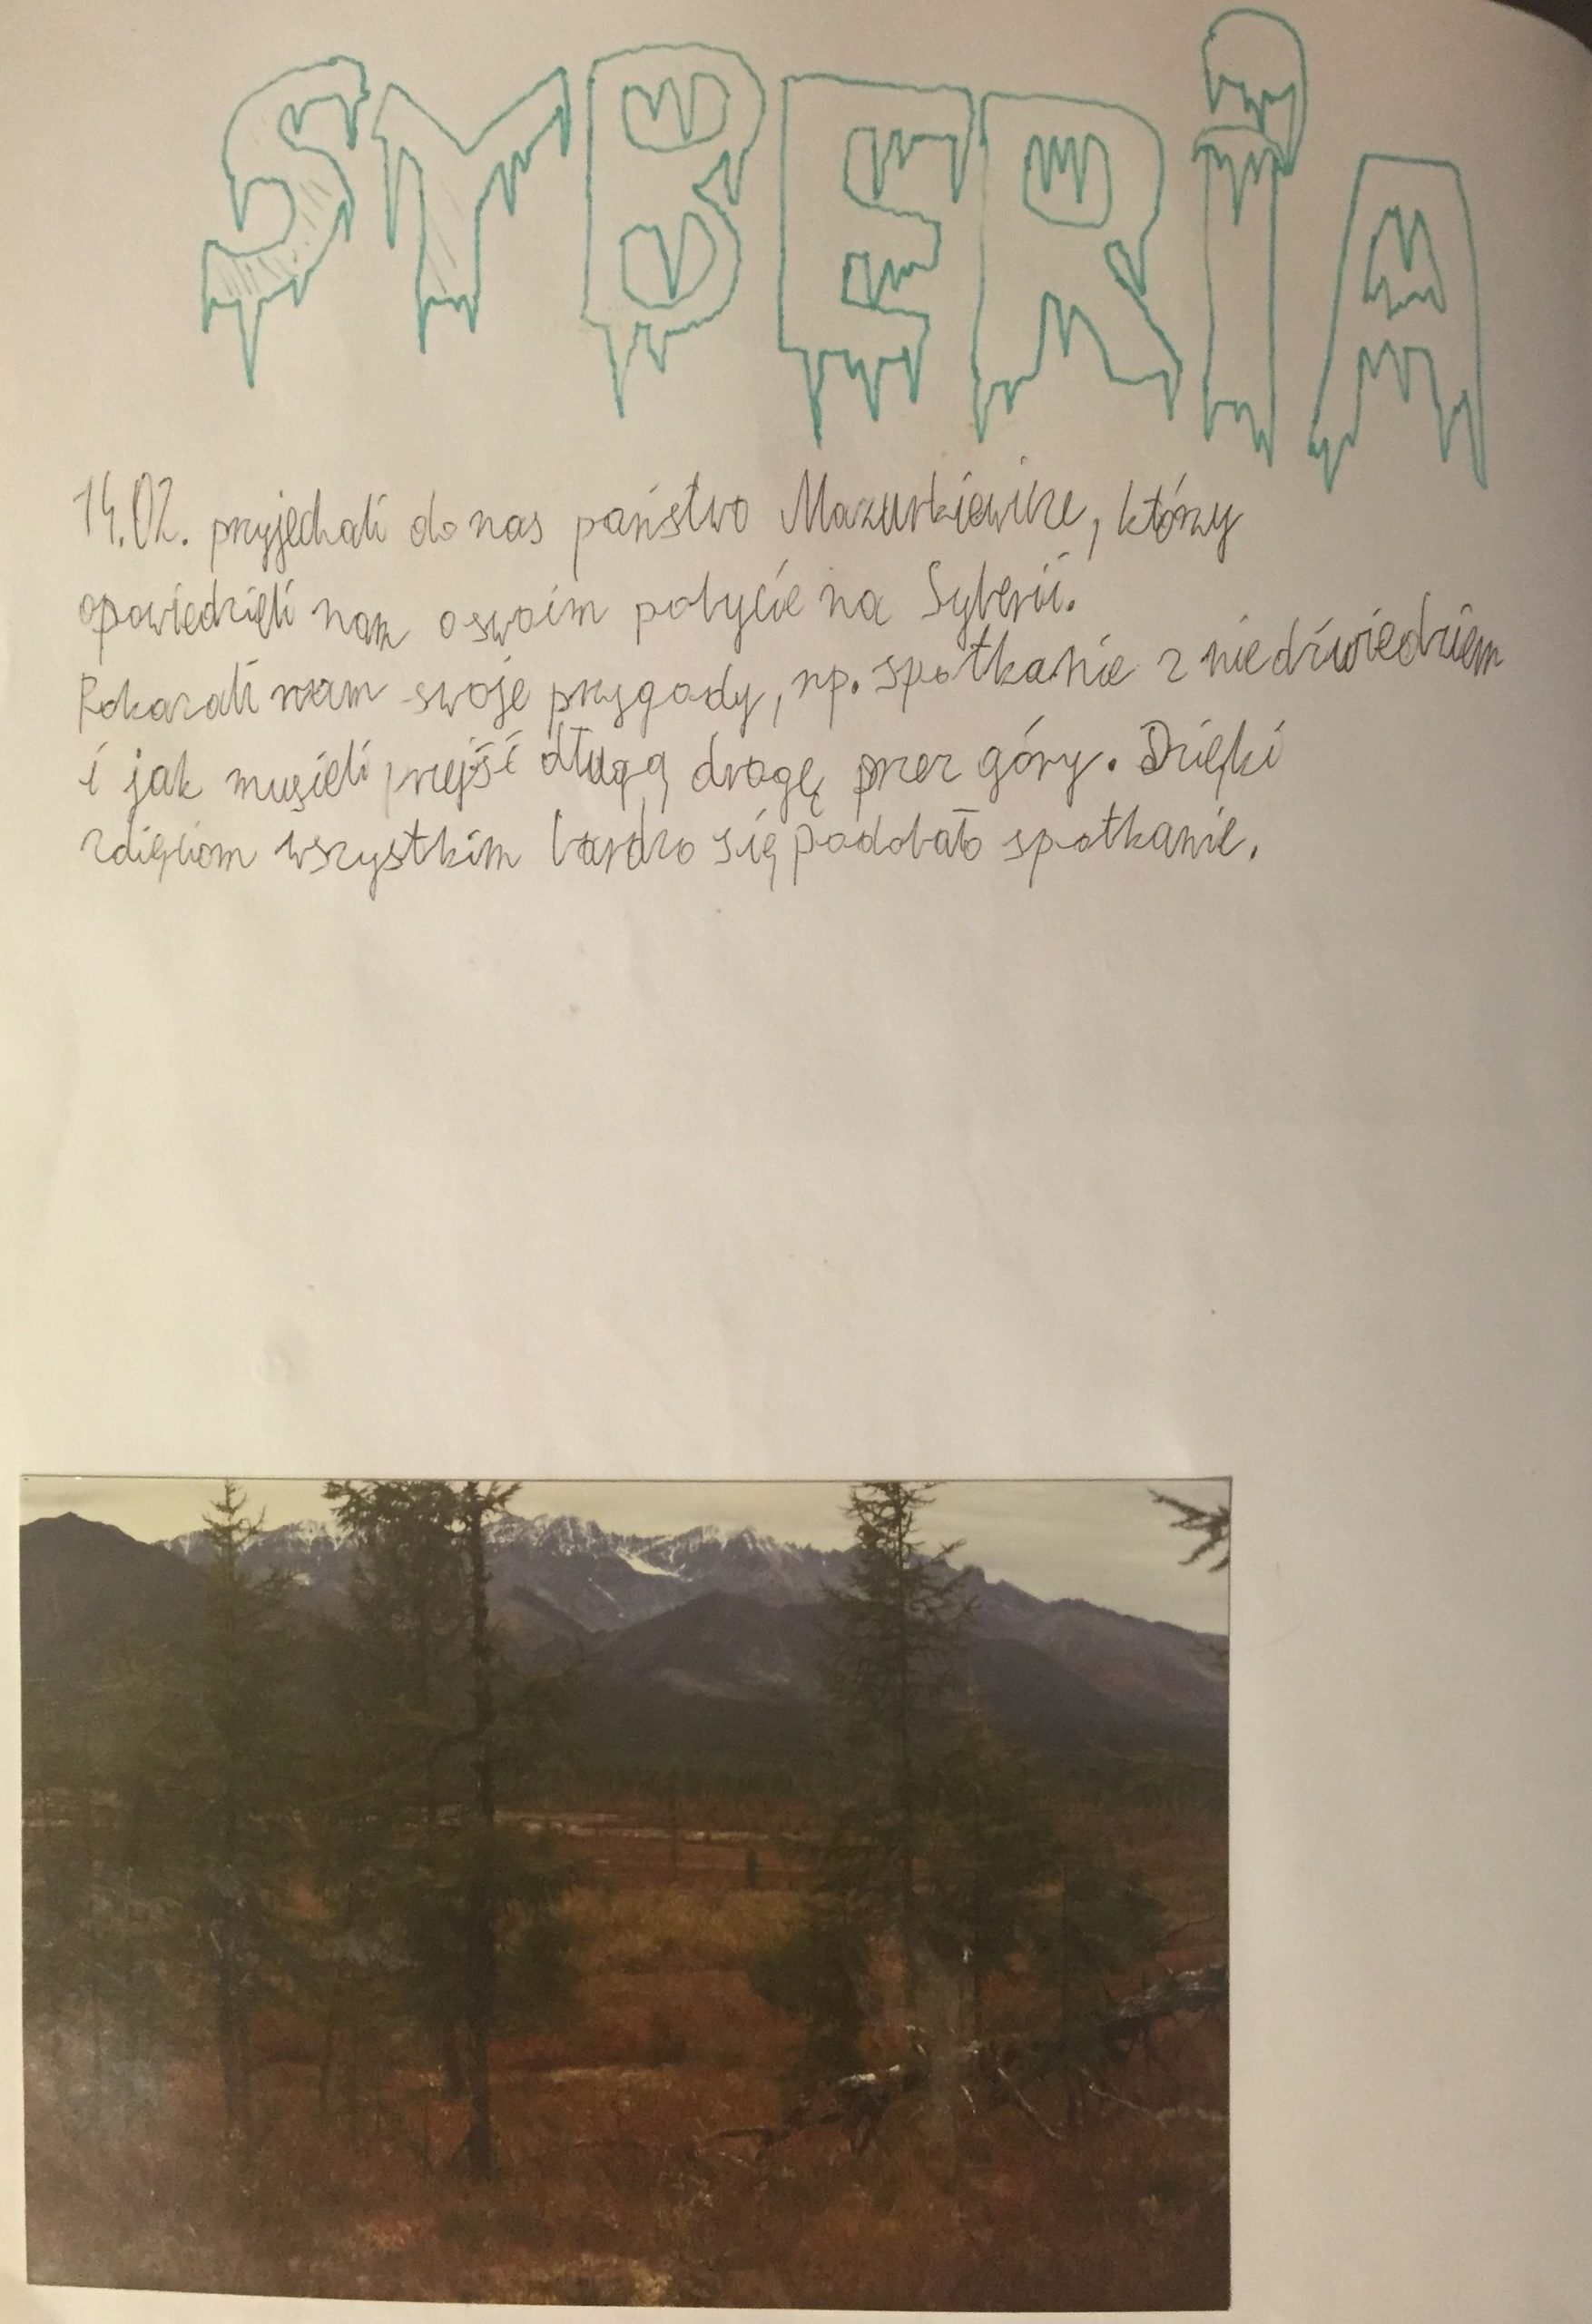 SYBERIA
14.02. przyjechali do nas państwo Mazurkiewicze, którzy
opowiedzieli nam o swoim pobycie na Syberii.
Pokazali nam swoje przygody, np. spotkanie z niedźwiedziem
i jak musieli przejść długą drogę przez góry. Dzięki
zdjęciom wszystkim bardzo się podobało spotkanie.